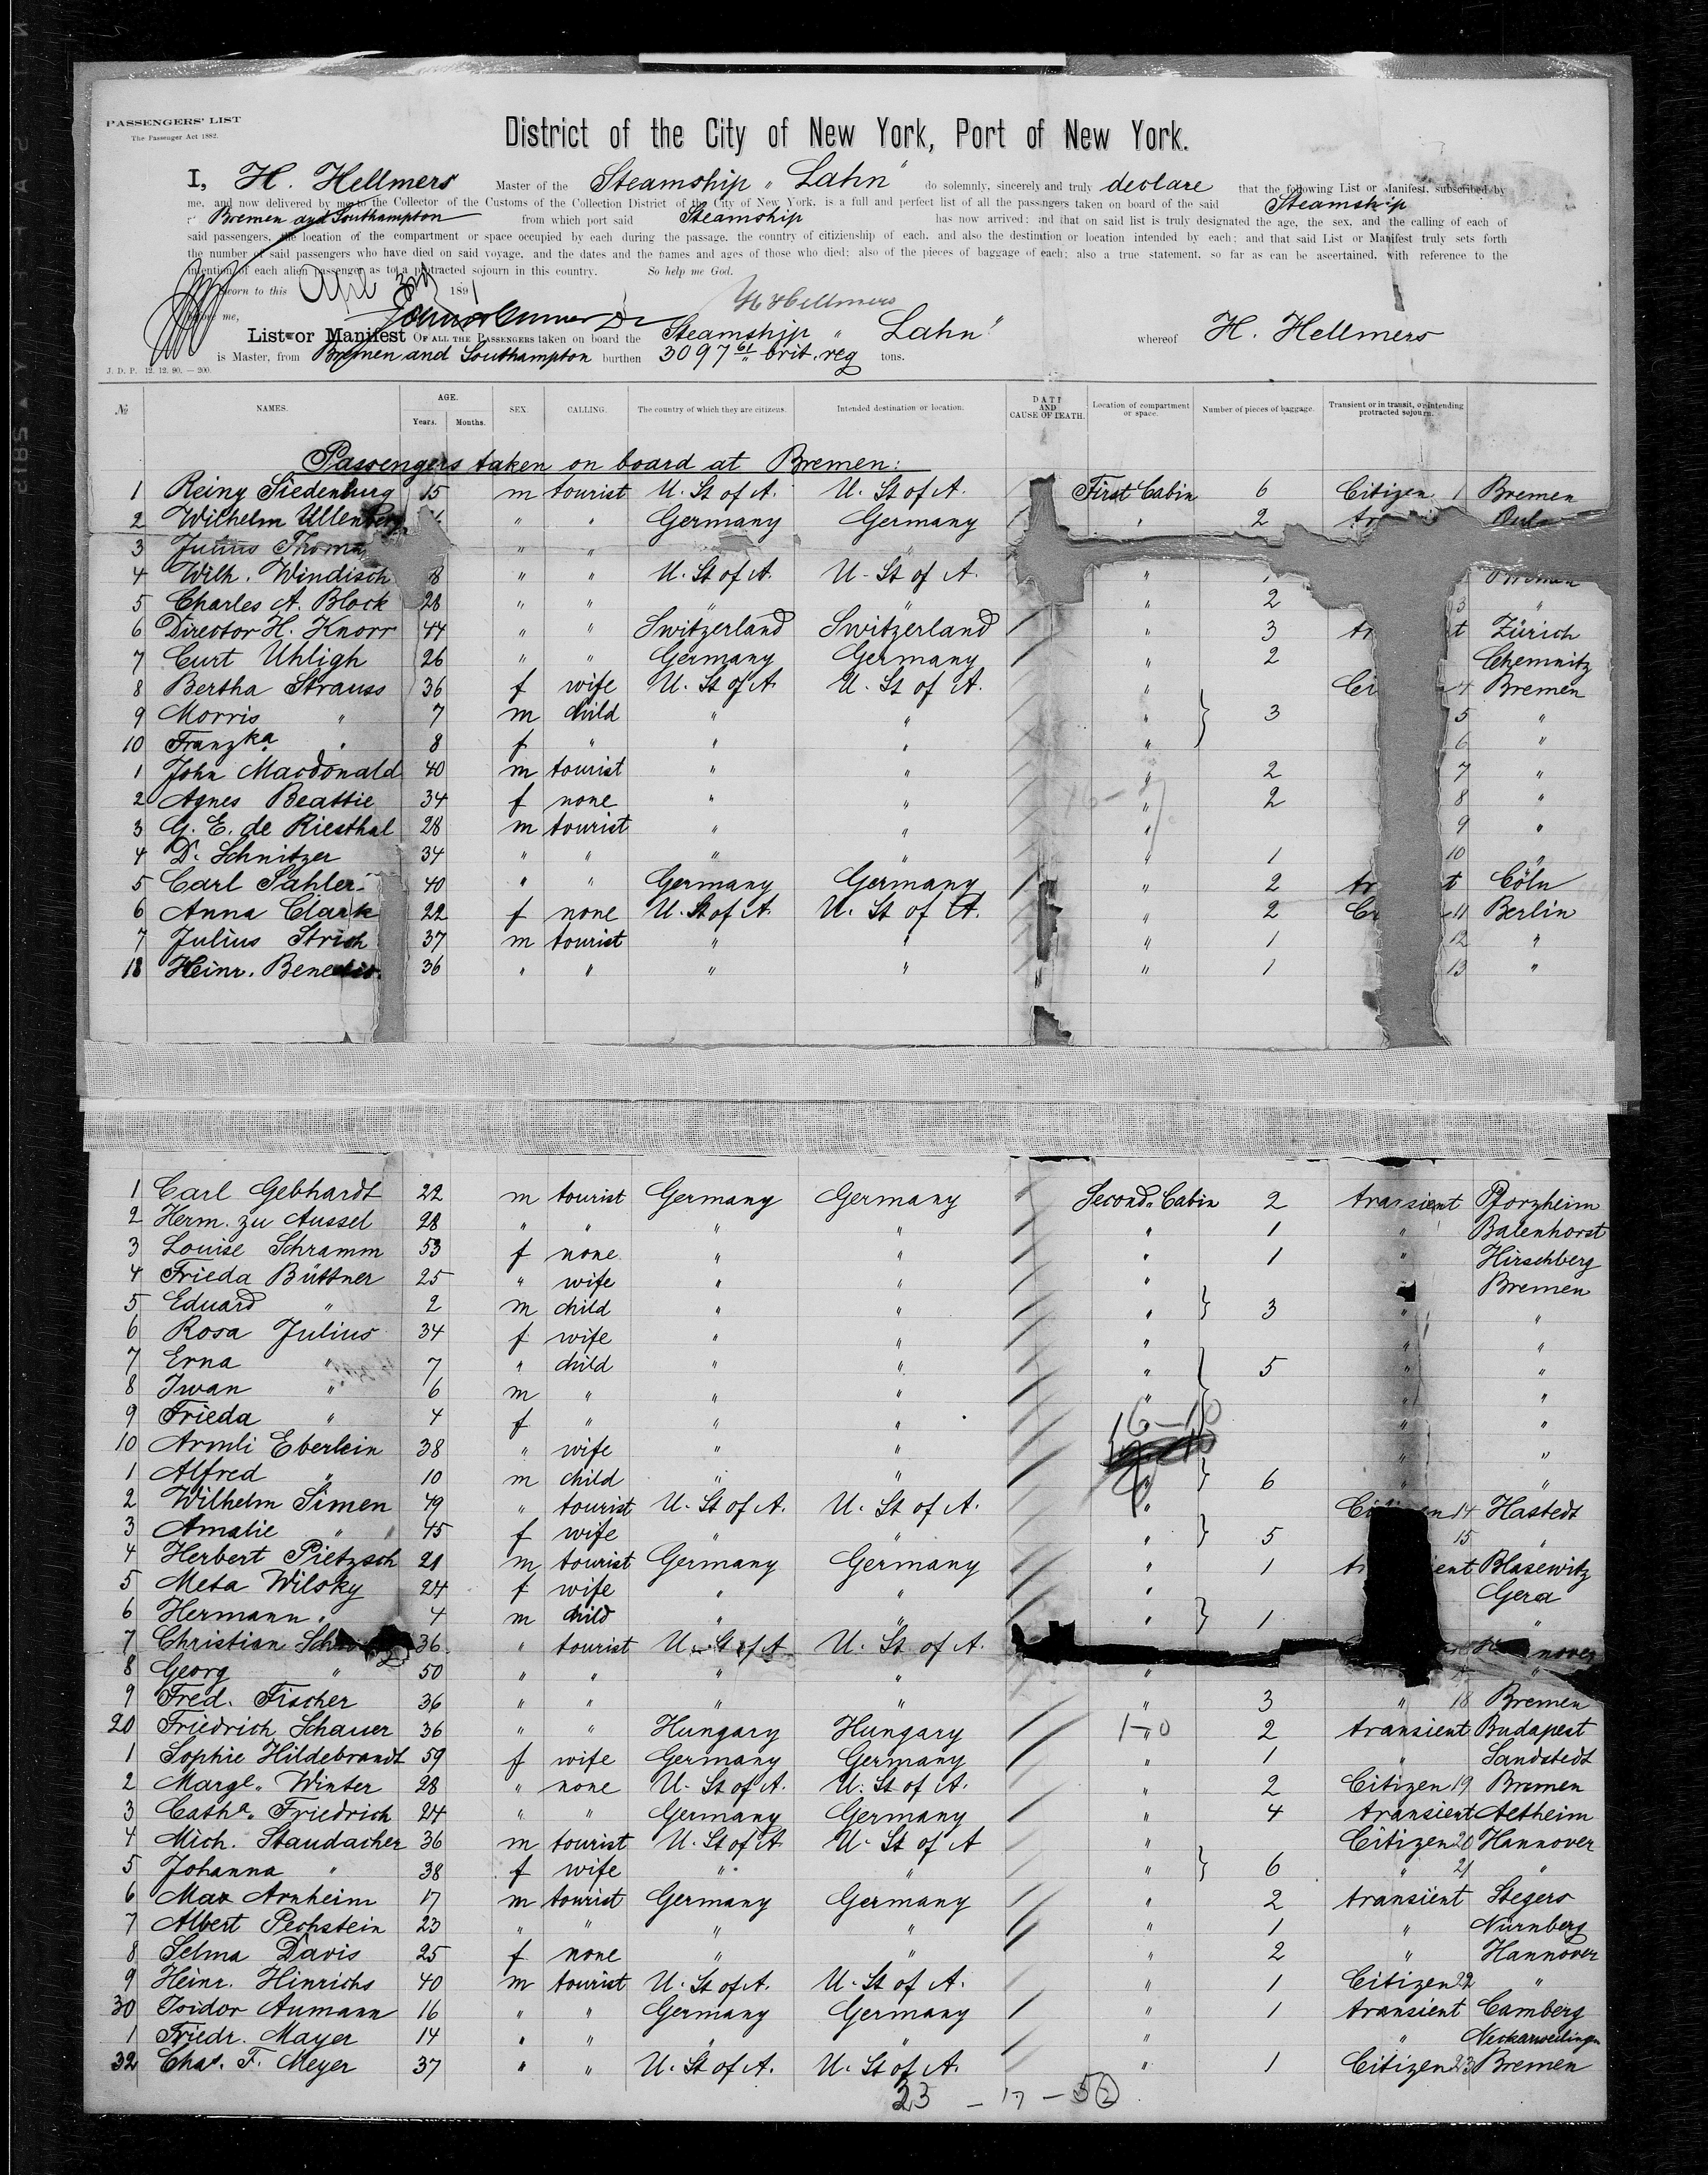 PASSENGERS' LIST
The Passenger Act 1882.
District of the City of New York, Port of New York.
I, H. Hellmers Master of the Steamship „ Lahn" do solemnly, sincerely and truly declare that the following List or Manifest, subscribed by
me, and now delivered by me to the Collector of the Customs of the Collection District of the City of New York, is a full and perfect list of all the passengers taken on board of the said Steamship
Bremen and Southampton from which port said Steamship has now arrived; and that on said list is truly designated the age, the sex, and the calling of each of
said passengers, the location of the compartment or space occupied by each during the passage, the country of citizienship of each, and also the destination or location intended by each; and that said List or Manifest truly sets forth
the number of said passengers who have died on said voyage, and the dates and the names and ages of those who died; also of the pieces of baggage of each; also a true statement, so far as can be ascertained, with reference to the
intention of each alien passenger as to a protracted sojourn in this country. So help me God.
Sworn to this 1891
before me, H Hellmers
List or Manifest OF ALL THE PASSENGERS taken on board the Steamship „ Lahn" whereof H. Hellmers
is Master, from Bremen and Southampton burthen 3097 61 brit. reg tons.
J. D. P. 12. 12. 90. — 200.
№ NAMES. AGE. Years. Months. SEX. CALLING. The country of which they are citizens. Intended destination or location. DATE AND CAUSE OF DEATH. Location of compartment or space. Number of pieces of baggage. Transient or in transit, or intending protracted sojourn.
Passengers taken on board at Bremen:
1 Reiny Siedenburg 15 m tourist U. St of A. U. St of A. First Cabin 6 Citizen 1 Bremen
2 Wilhelm Ullenberg " " Germany Germany " 2
3 Julius " "
4 Wilh. Windisch 8 " " U. St of A. U. St of A. " Bremen
5 Charles A. Block 28 " " " " " 2 3 "
6 Director H. Knorr 44 " " Switzerland Switzerland " 3 t Zürich
7 Curt Uhligh 26 " " Germany Germany " 2 Chemnitz
8 Bertha Strauss 36 f wife U. St of A. U. St of A. " Ci 4 Bremen
9 Morris " 7 m child " " " } 3 5 "
10 Franzka " 8 f " " " " 6 "
1 John Macdonald 40 m tourist " " " 2 7 "
2 Agnes Beattie 34 f none " " " 2 8 "
3 G. E. de Riesthal 28 m tourist " " " 9 "
4 Dr. Schnitzer 34 " " " " " 1 10 "
5 Carl Sahler 40 " " Germany Germany " 2 tr t Cöln
6 Anna Clark 22 f none U. St of A. U. St of A. " 2 Ci 11 Berlin
7 Julius Strich 37 m tourist " " " 1 12 "
18 Heinr. 36 " " " " " 1 13 "
1 Carl Gebhardt 22 m tourist Germany Germany Second Cabin 2 transient Pforzheim
2 Herm. zu Aussel 28 " " " " " 1 " Balenhorst
3 Louise Schramm 53 f none " " " 1 " Hirschberg
4 Frieda Büttner 25 " wife " " " Bremen
5 Eduard " 2 m child " " " } 3 " "
6 Rosa Julius 34 f wife " " " " "
7 Erna " 7 " child " " " } 5 " "
8 Iwan " 6 m " " " " " "
9 Frieda " 4 f " " " 16-18 " "
10 Armli Eberlein 38 " wife " " " "
1 Alfred " 10 m child " " " } 6 " "
2 Wilhelm Simen 49 " tourist U. St of A. U. St of A. " Citizen 14 Hastedt
3 Amalie " 45 f wife " " " } 5 15 "
4 Herbert Pietzsch 21 m tourist Germany Germany " 1 transient Blasewitz
5 Meta Wilsky 24 f wife " " " Gera
6 Hermann " 4 m child " " " } 1 "
7 Christian 36 " tourist U. St of A. U. St of A.
8 Georg " 50 " " " " "
9 Fred. Fischer 36 " " " " " 3 " 18 Bremen
20 Friedrich Schauer 36 " " Hungary Hungary 1-0 2 transient Budapest
1 Sophie Hildebrandt 59 f wife Germany Germany " 1 " Sandstedt
2 Margt. Winter 28 " none U. St of A. U. St of A. " 2 Citizen 19 Bremen
3 Catha. Friedrich 24 " " Germany Germany " 4 transient Aetheim
4 Mich. Staudacher 36 m tourist U. St of A U. St of A " Citizen 20 Hannover
5 Johanna " 38 f wife " " " } 6 " 21 "
6 Max Arnheim 17 m tourist Germany Germany " 2 transient Stegers
7 Albert Pechstein 23 " " " " " 1 " Nürnberg
8 Selma Davis 25 f none " " " 2 " Hannover
9 Heinr. Hinrichs 40 m tourist U. St of A. U. St of A. " 1 Citizen 22 "
30 Isidor Aumann 16 " " Germany Germany " 1 transient Camberg
1 Friedr. Mayer 14 " " " " " " Neckarweihingen
32 Chas. F. Meyer 37 " " U. St of A. U. St of A. " 1 Citizen 23 Bremen
23 - 17 - 50